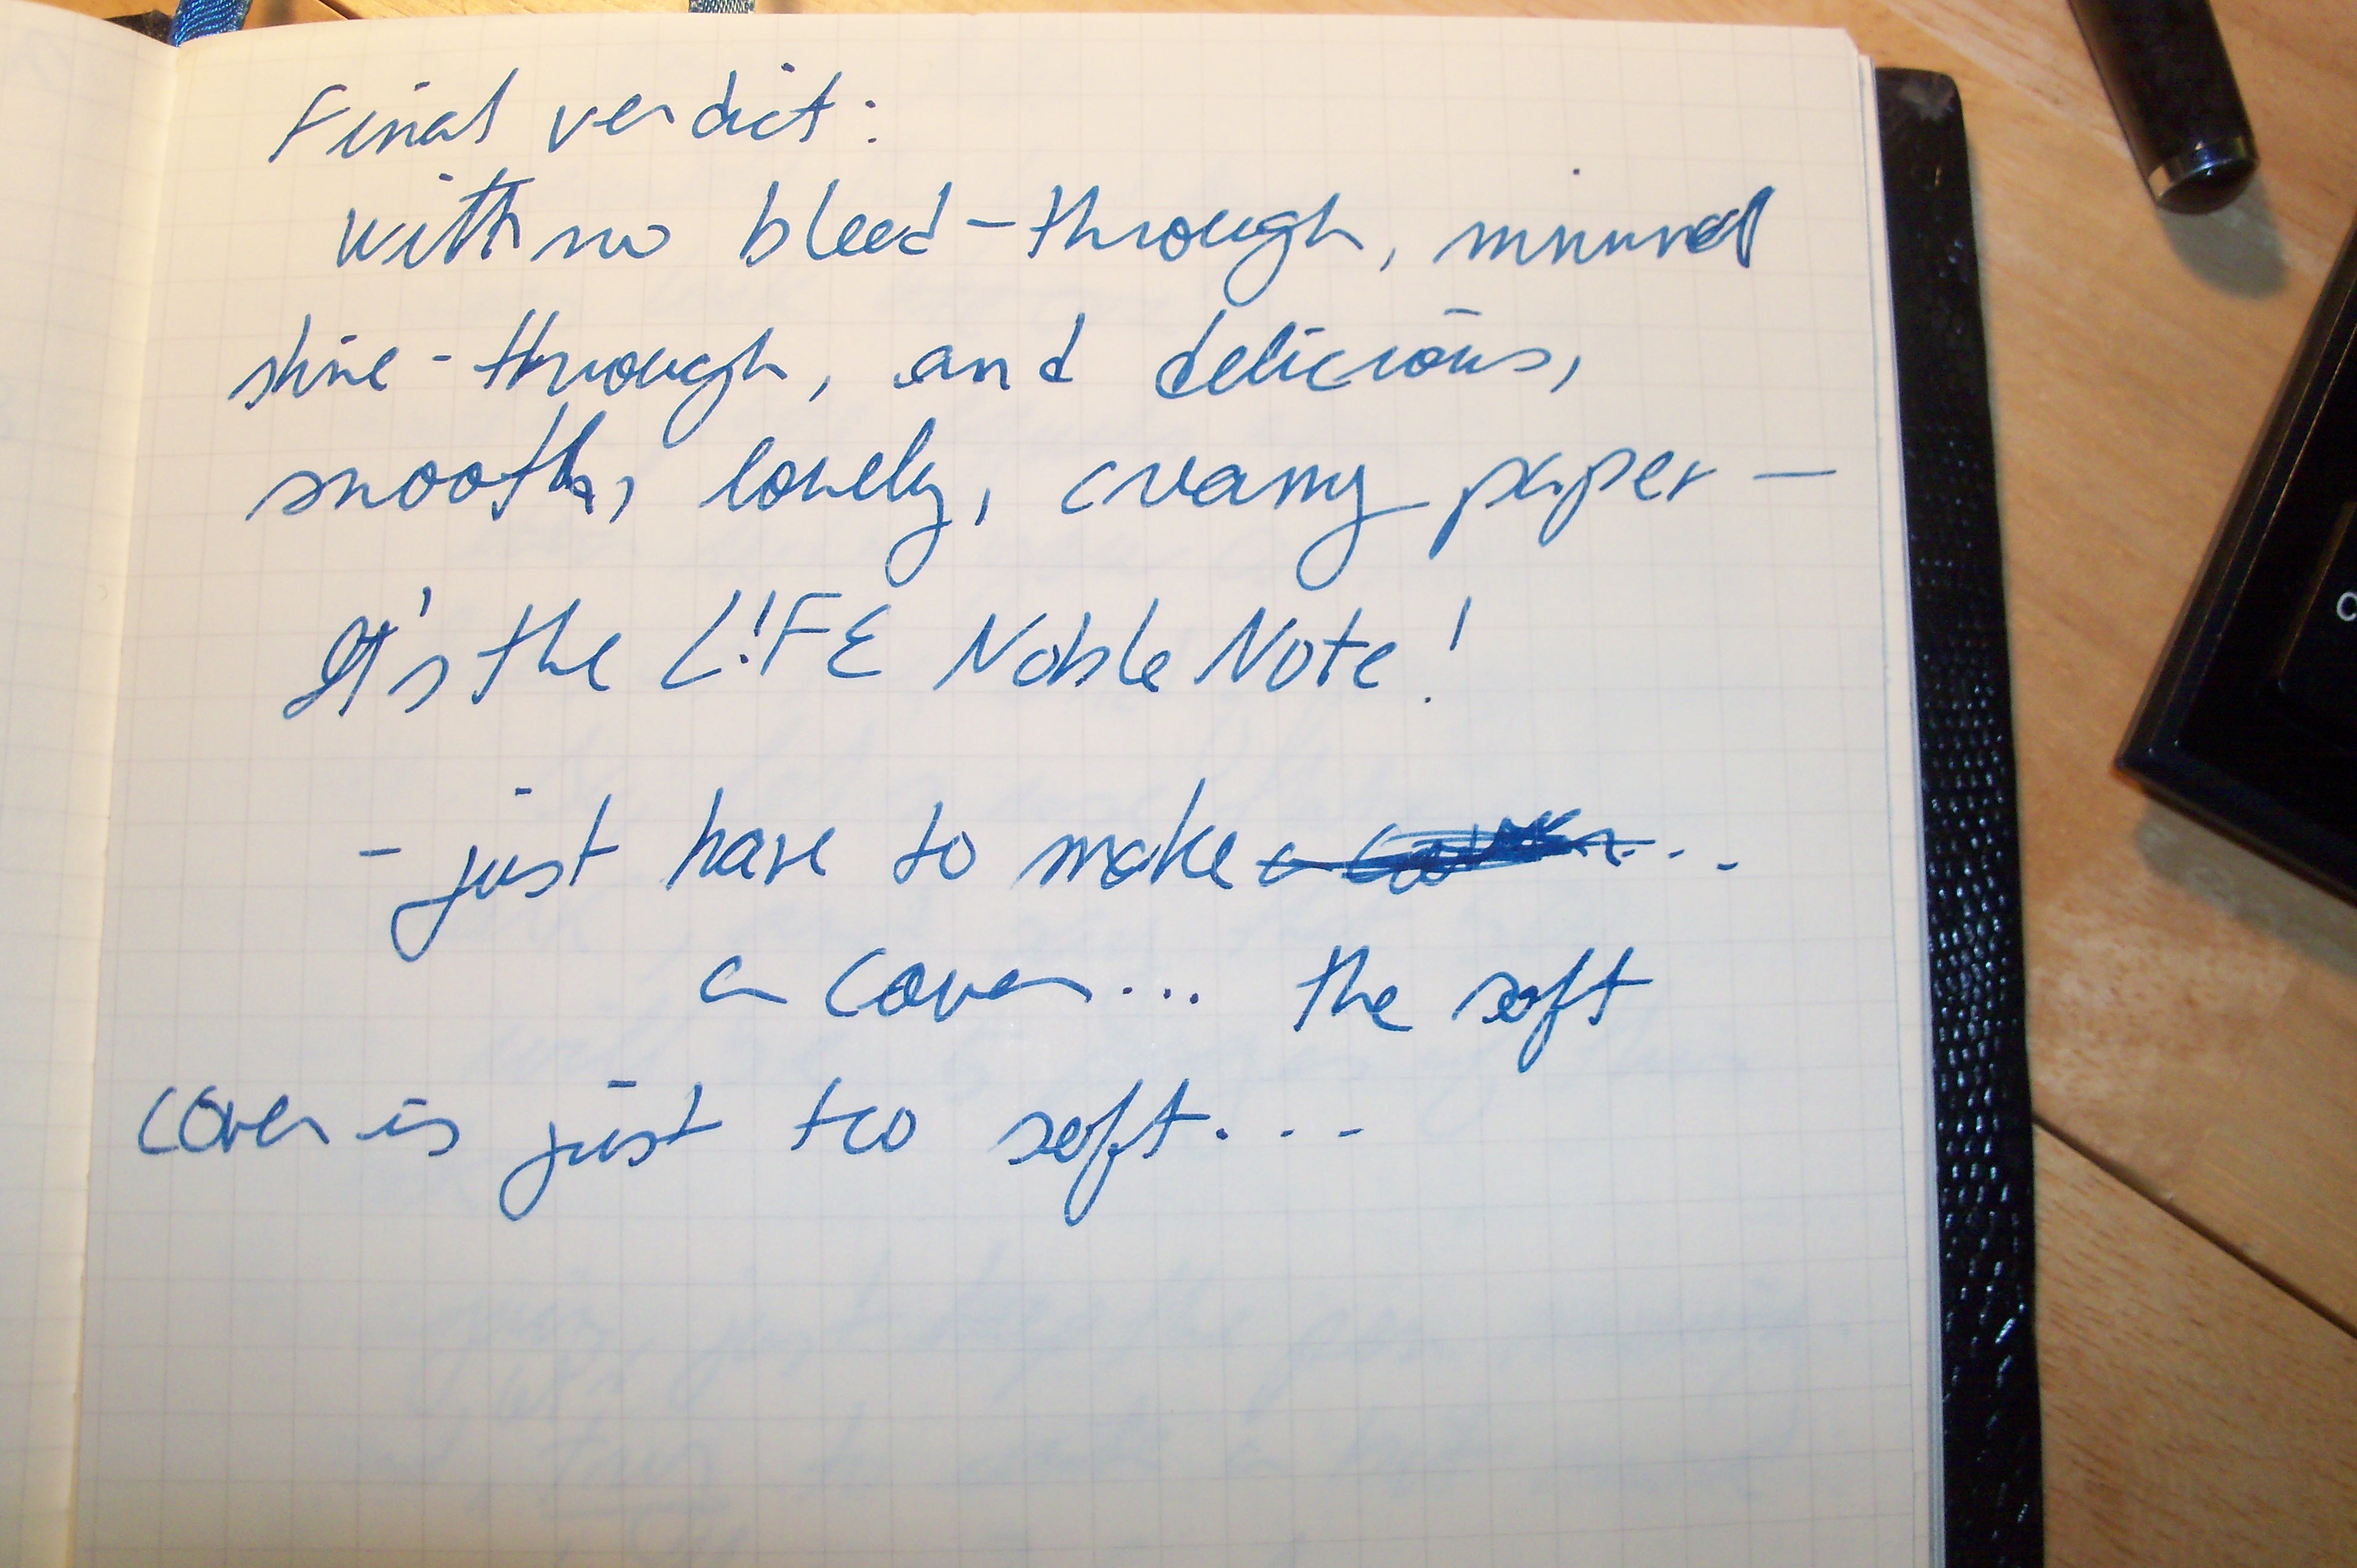 Final verdict:
with no bleed-through, minimal
shine-through, and delicious,
smooth, lovely, creamy paper —
It's the L!FE Noble Note!
- just have to make a cover...
a cover... the soft
cover is just too soft...